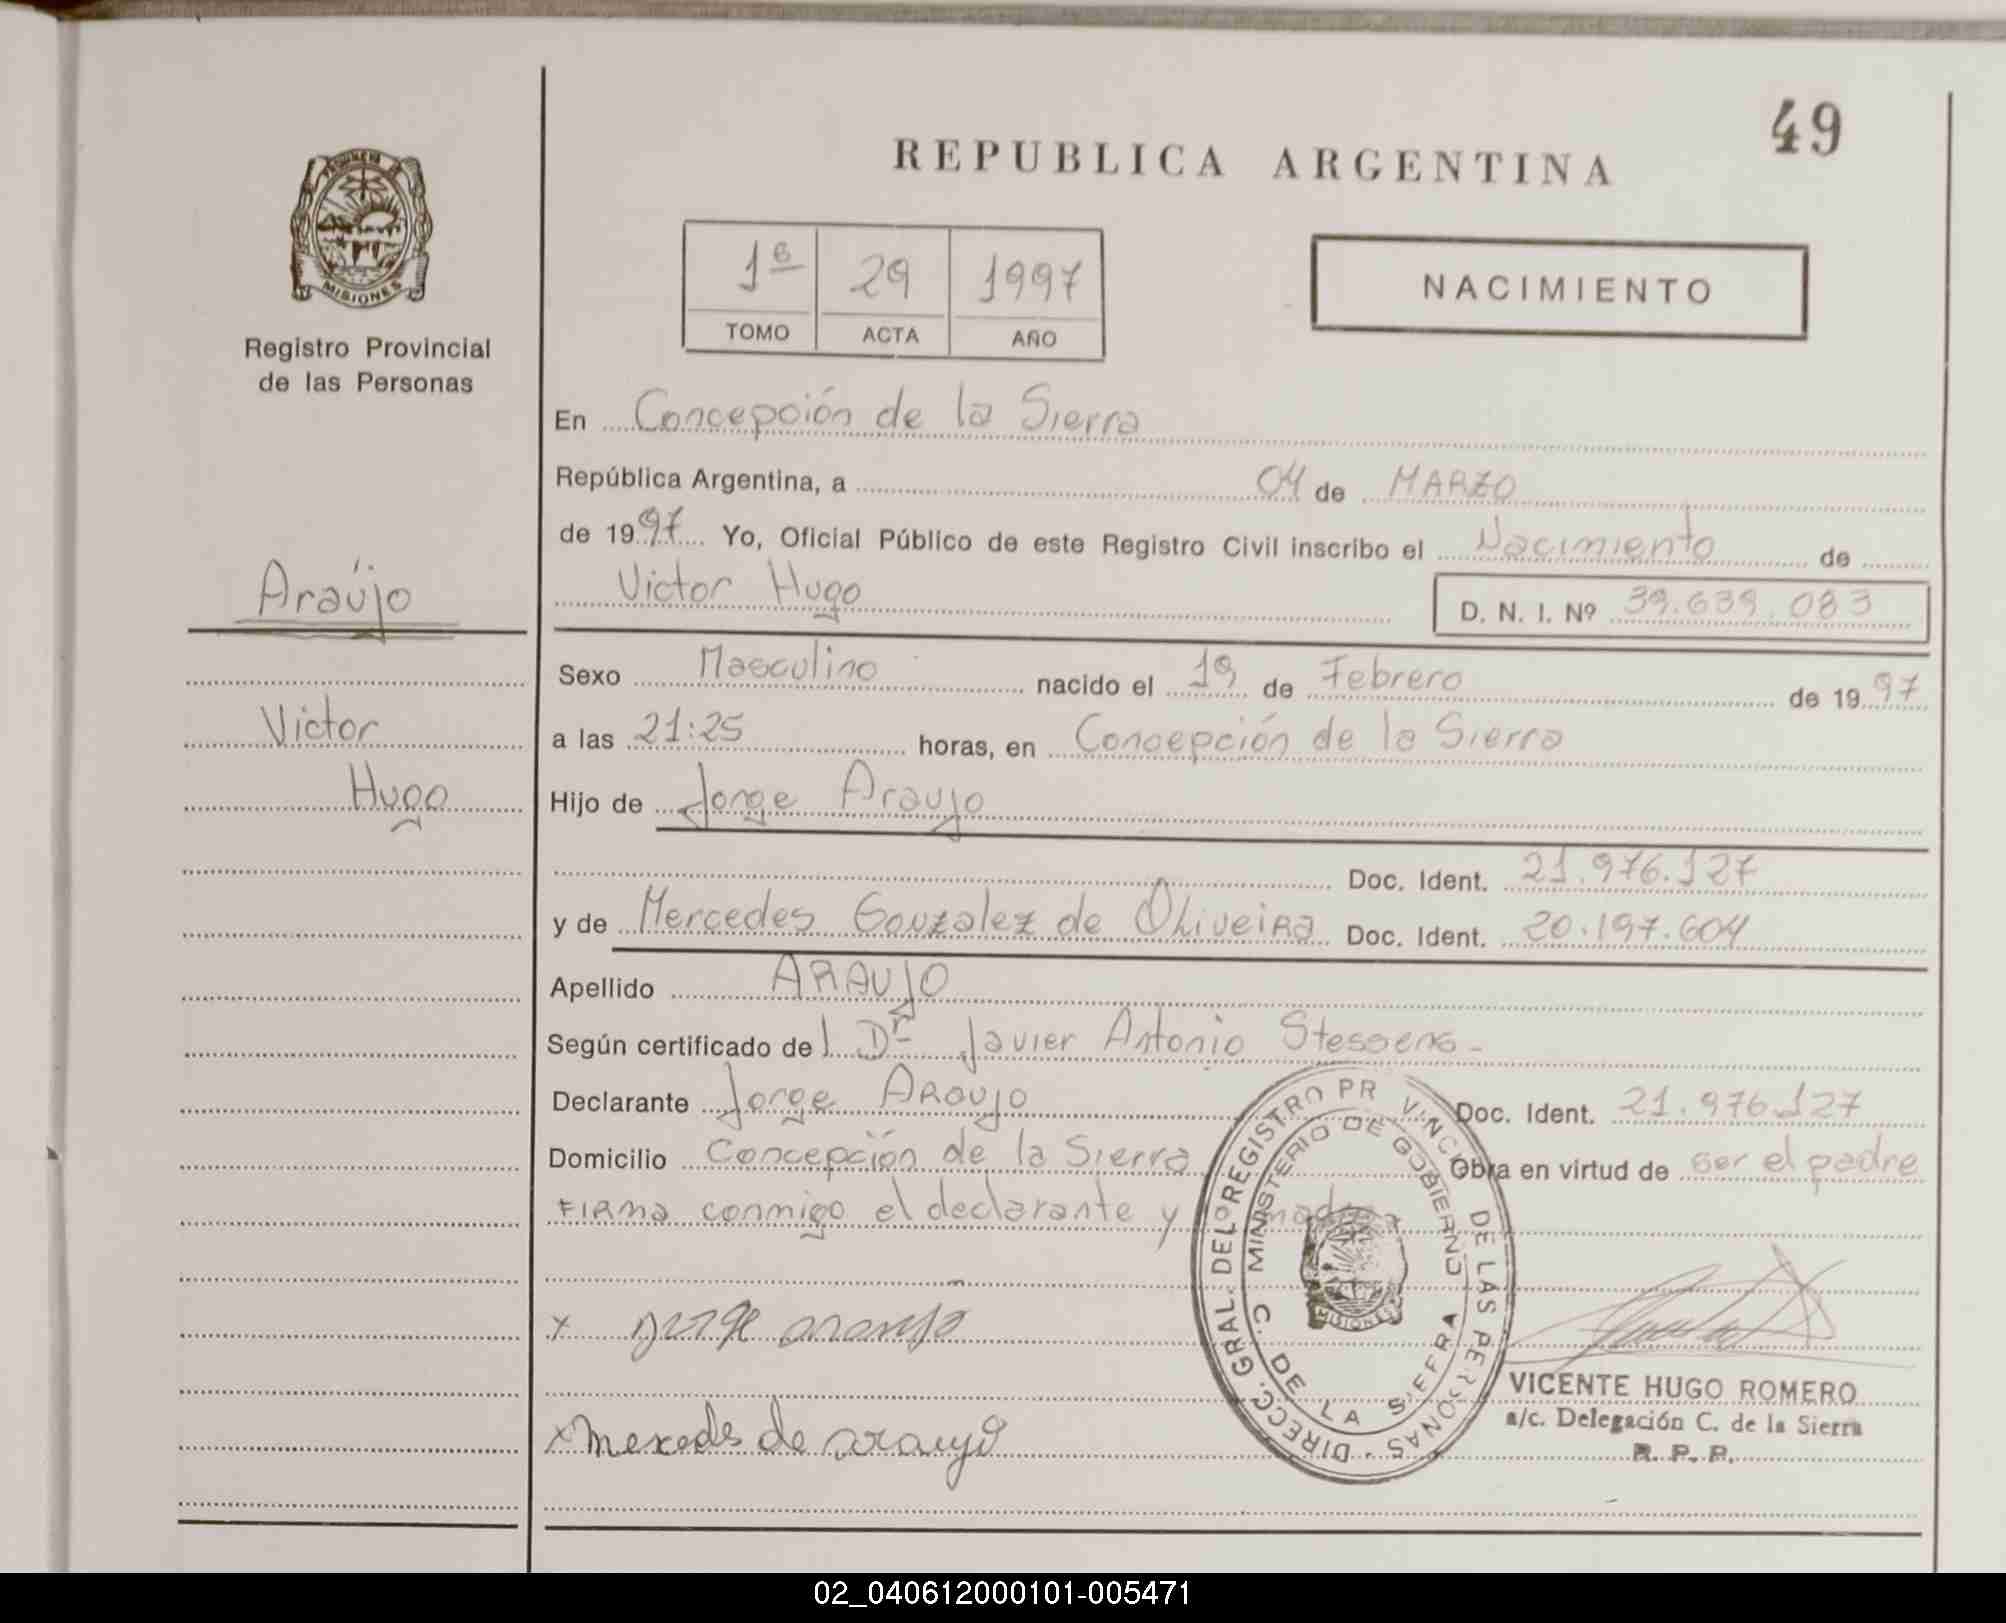 49
REPUBLICA ARGENTINA
MISIONES
Registro Provincial
de las Personas
1º 29 1997
TOMO ACTA AÑO
NACIMIENTO
En Concepción de la Sierra
República Argentina, a 04 de MARZO
de 1997 Yo, Oficial Público de este Registro Civil inscribo el Nacimiento de
Victor Hugo D. N. I. Nº 39.639.083
Araújo
Victor
Hugo
Sexo Masculino nacido el 19 de Febrero de 1997
a las 21:25 horas, en Concepción de la Sierra
Hijo de Jorge Araujo
Doc. Ident. 21.976.127
y de Mercedes Gonzalez de Oliveira Doc. Ident. 20.197.604
Apellido ARAUJO
Según certificado del Dr Javier Antonio Stessens-
Declarante Jorge Araujo Doc. Ident. 21.976.127
Domicilio Concepción de la Sierra Obra en virtud de ser el padre
Firma conmigo el declarante y madre
x Jorge araujo
x mercedes de araujo
DIRECC. GRAL. DEL REGISTRO PR VINCI DE LAS PERSONAS
MINISTERIO DE GOBIERNO
C. DE LA SIERRA
MISIONES
VICENTE HUGO ROMERO
a/c. Delegación C. de la Sierra
R. P. P.
02_040612000101-005471